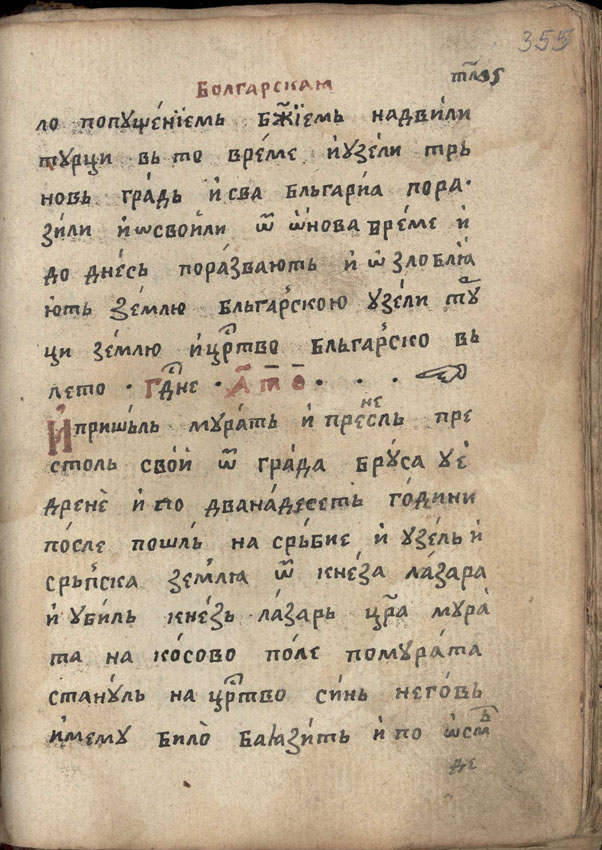 355
Болгарскаꙗ
ло попꙋщéнїемь бж҃їемь надвили
тꙋрци вь то врéме и҆ꙋзéли трь
новь грáдь и҆ сва бльгарїа пора·
зи́ли и҆ ѡсвои́ли ѿ ѡ҆́нова врéме и҆
до днéсь порáзвають и҆ ѡ҆ злоблїа
ю́ть зéмлю бльгáрскою ꙋзéли тꙋр
ци зéмлю и҆ црⷭ҇тво бльгáрско вь
лето · гдⷭ҇не · а҃ т҃ о҃ · · ·
И҆ пришьль мꙋрáть и҆ пренéсль пре
столь свои́ ѿ грáда брꙋ́са ꙋ е҆
дренѐ и҆ по дванáдесеть го́дини
по́сле пошль на срьбие и҆ ꙋзéль и҆
срьпска зéмлꙗ ѿ кнéза лáзара
и҆ ꙋби́ль кнéзь лáзарь цр҃а мꙋрá
та на ко́сово по́ле по мꙋрáта
станꙋ́ль на црⷭ҇тво си́нь него́вь
и҆мемꙋ било̀ баꙗзи́ть и҆ по ѡ҆смь
де